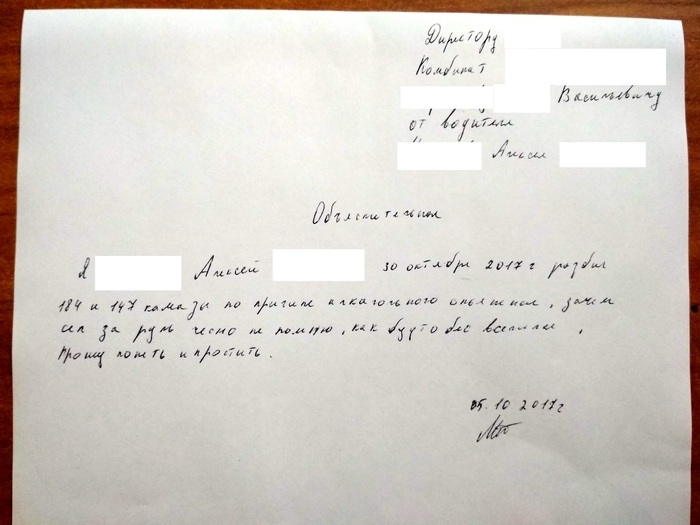 Директору
Комбинат
Васильевичу
от водителя
Алексея
Объяснительная
Я Алексей 30 октября 2017 г разбил
184 и 147 камазы по причине алкогольного опьянения, зачем
сел за руль чесно не помню, как будто бес вселился,
Прошу понять и простить.
05.10 2017 г